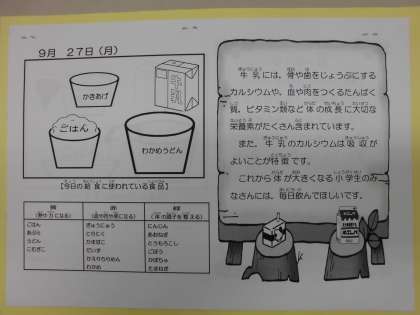 9月 27日(月)
かきあげ
ごはん
わかめうどん
【今日の給食に使われている食品】
黄 赤 緑
(熱や力になる) (血や肉や骨になる) (体の調子を整える)
ごはん ぎゅうにゅう にんじん
あぶら とりにく あおねぎ
うどん かまぼこ とうもろこし
こむぎこ だいず ごぼう
かえりちりめん かぼちゃ
わかめ たまねぎ
牛乳には、骨や歯をじょうぶにする
カルシウムや、血や肉をつくるたんぱく
質、ビタミン類など体の成長に大切な
栄養素がたくさん含まれています。
また、牛乳のカルシウムは吸収が
よいことが特徴です。
これから体が大きくなる小学生のみ
なさんには、毎日飲んでほしいです。
MILK